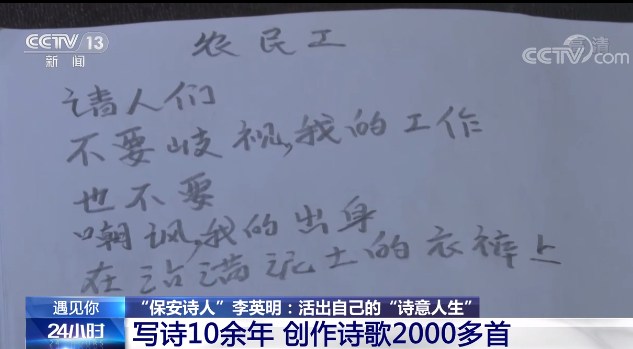 CCTV 13
新闻
高清
CCTV.com
农民工
请人们
不要歧视,我的工作
也不要
嘲讽,我的出身
在沾满泥土的衣裤上
遇见你
24小时
“保安诗人”李英明:活出自己的“诗意人生”
写诗10余年 创作诗歌2000多首